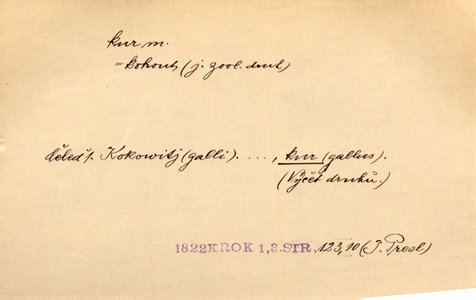 kur m.
= kohout, (j. zool. druh)
čeleď 1. Kokowitj (galli). ..., kur (gallus).
(Výčet druhů.)
1822 KROK 1,3. STR. 123,10 (J. Presl)